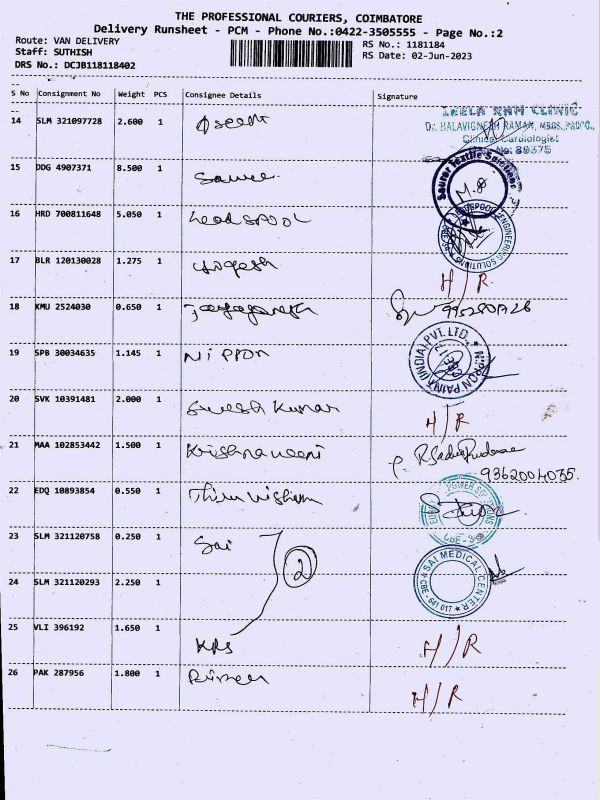 THE PROFESSIONAL COURIERS, COIMBATORE
Delivery Runsheet - PCM - Phone No.:0422-3505555 - Page No.:2
Route: VAN DELIVERY
RS No.: 1181184
Staff: SUTHISH
RS Date: 02-Jun-2023
DRS No.: DCJB118118402
S No Consignment No Weight PCS Consignee Details Signature
14 SLM 321097728 2.600 1
LEELA RAM CLINIC
Dr. BALAVIGNESH RAMAN, MBBS.,
Clinical Cardiologist
No: 89375
15 DDG 4907371 8.500 1
Saurer Textile Solutions
16 HRD 700811648 5.050 1 Lead SPOOL
ENGINEERING SOLUTIONS
17 BLR 120130028 1.275 1 yogesh H/R
18 KMU 2524030 0.650 1 Jayaganesh
19 SPB 30034635 1.145 1 NIPPON
NIPPON PAINT (INDIA) PVT. LTD.,
20 SVK 10391481 2.000 1 Suresh Kumar H/R
21 MAA 102853442 1.500 1 Krishnaveni
9362004035.
22 EDQ 10893854 0.550 1
POWER SOLUTIONS
CBE-
23 SLM 321120758 0.250 1 Sai 2
SAI MEDICAL CENTER
CBE - 641 017
24 SLM 321120293 2.250 1
25 VLI 396192 1.650 1 KRS H/R
26 PAK 287956 1.800 1 H/R